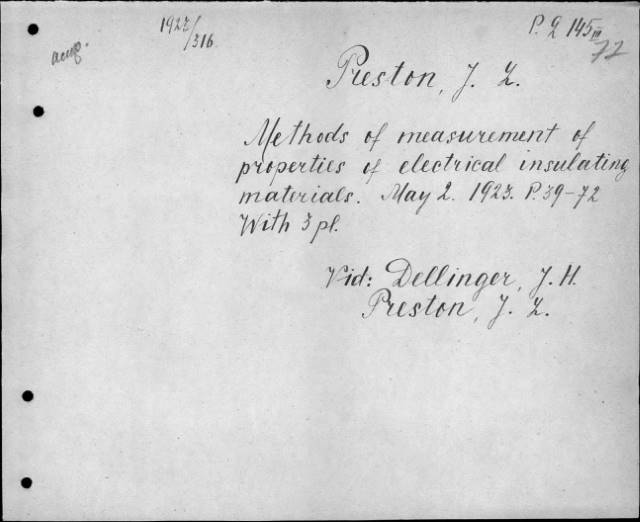 1923/316
P. 2 145 III
72
асир.
Preston, J. L.
Methods of measurement of
properties of electrical insulating
materials. May 2. 1923. P. 39-72
With 3 pl.
Vid: Dellinger, J. H.
Preston, J. L.